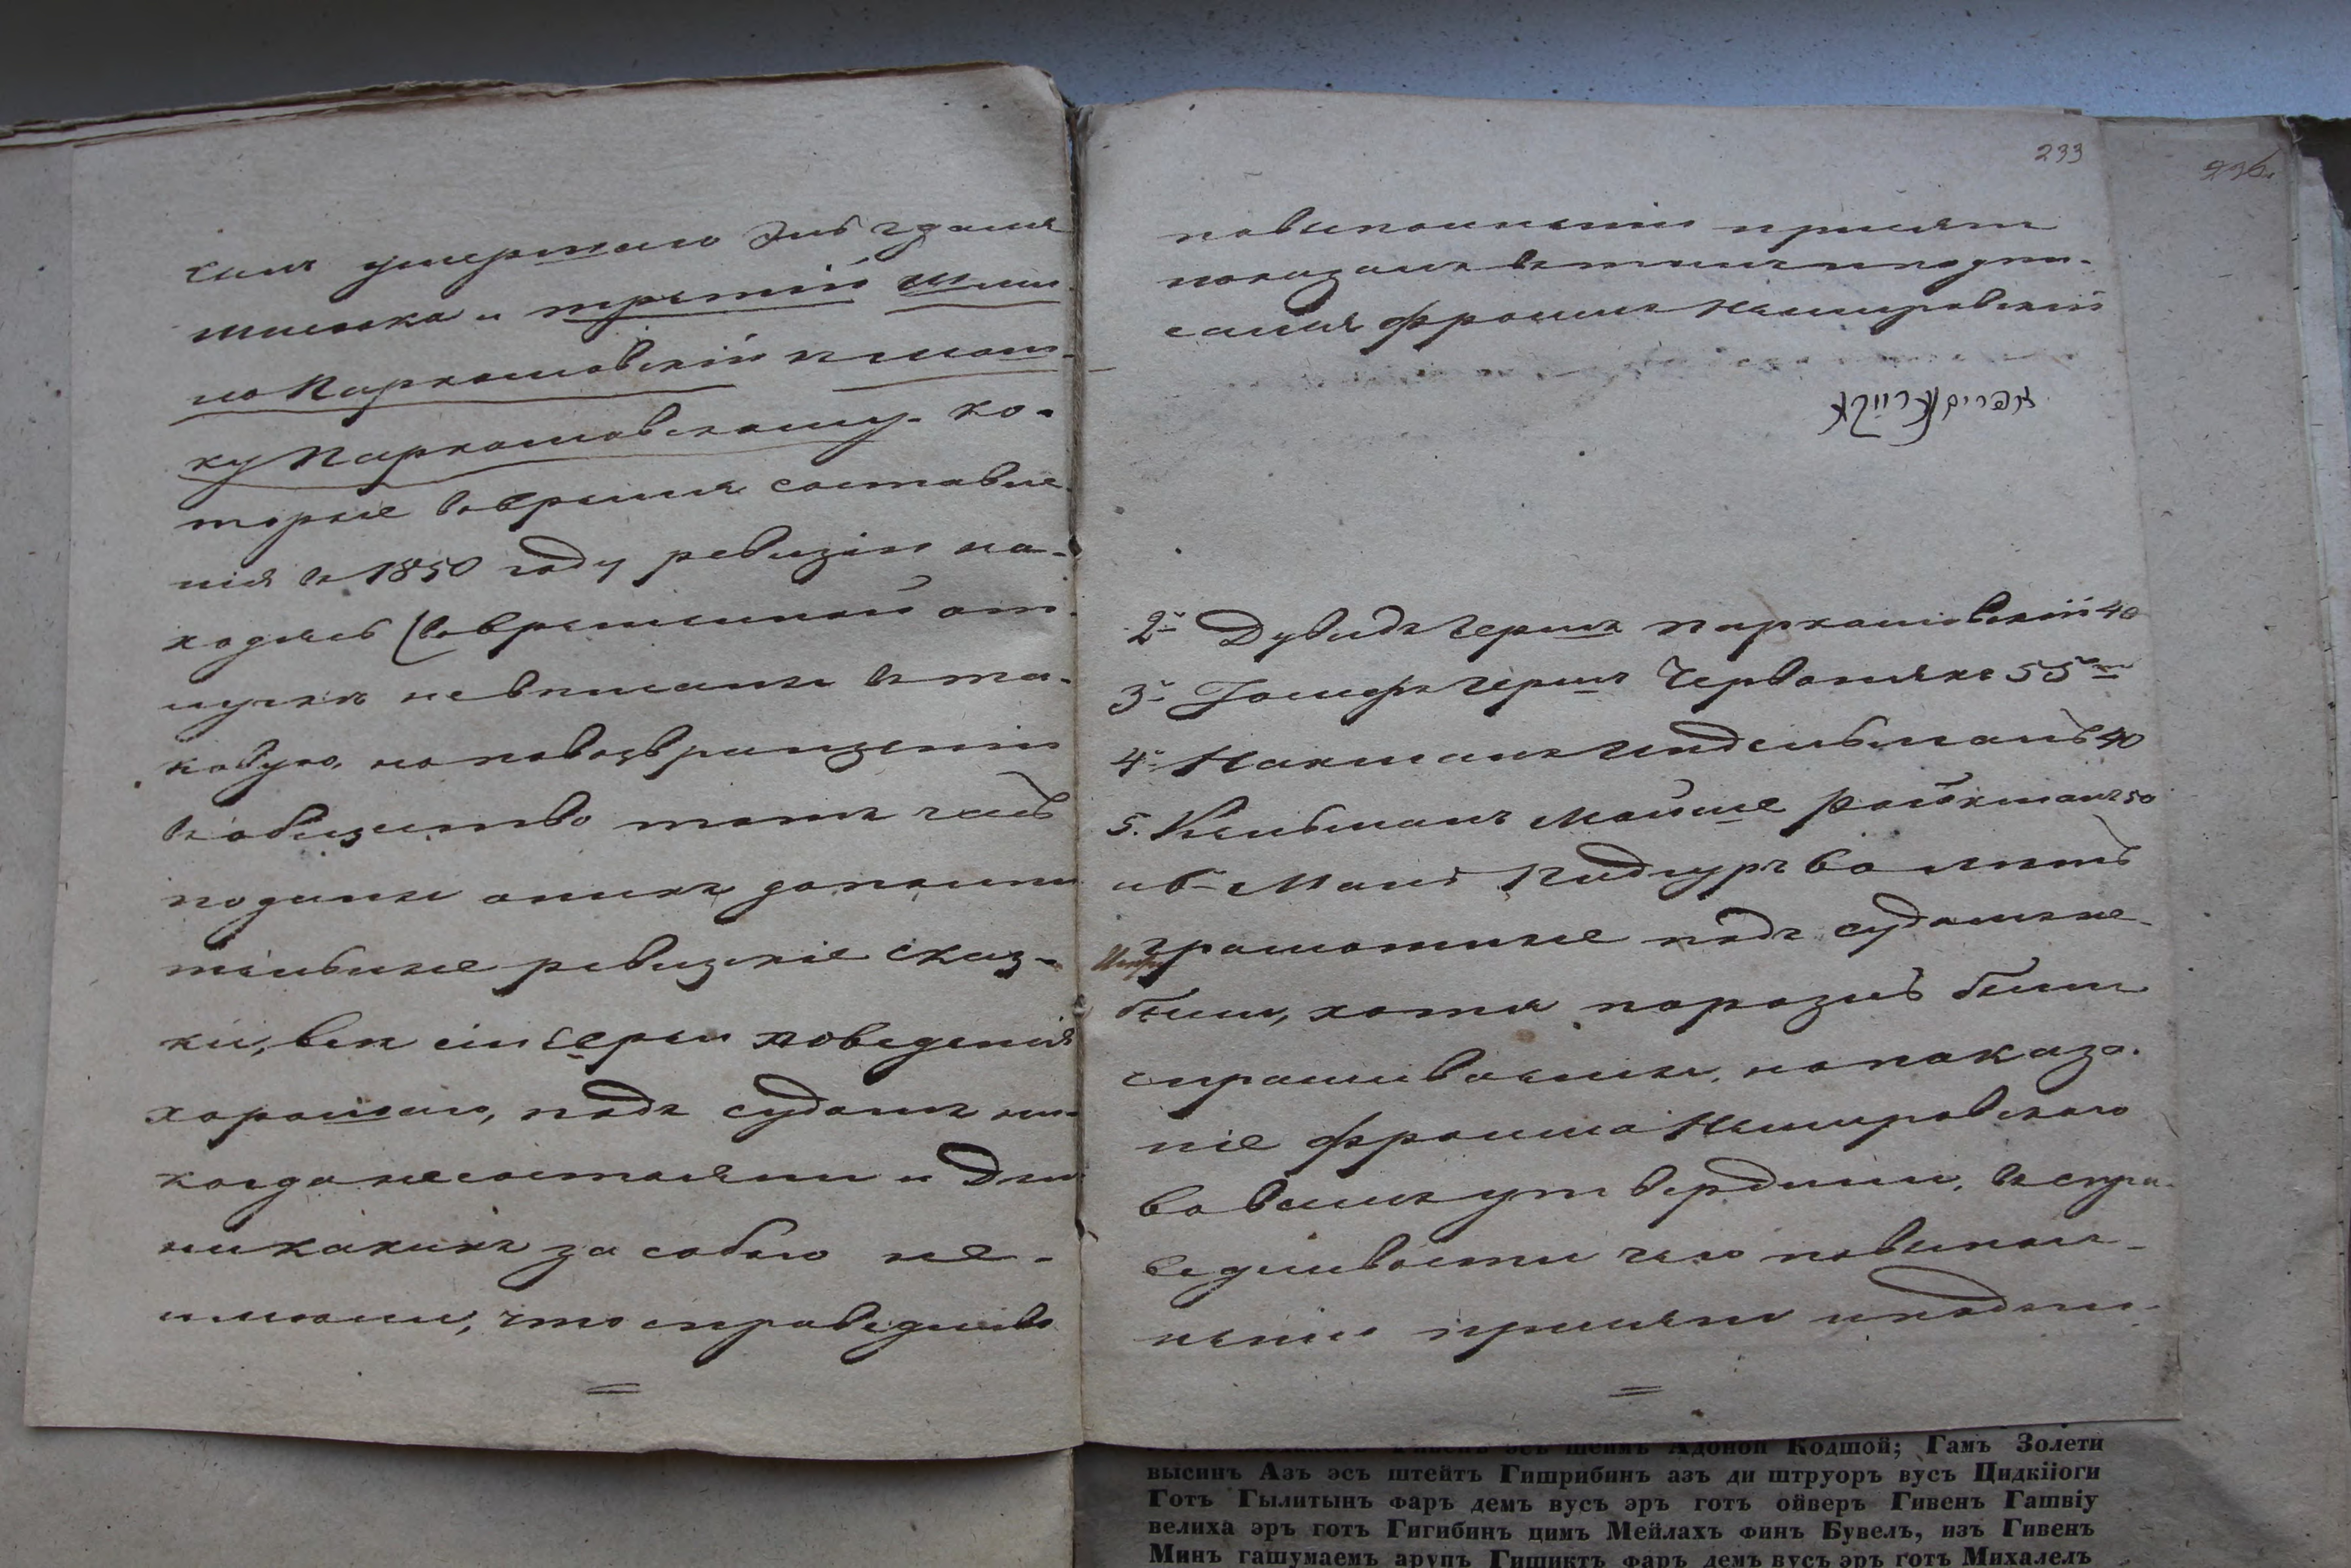 сынъ умершаго Эль Гдаля
Мошка и третій Шми-
ло Паркашовскій къ мат-
ку Паркашовскому. ко-
торые во время составле-
нія въ 1850 году ревизіи на-
ходясь во временной от-
лучкѣ не вписаны въ та-
ковую, но по возвращеніи
въ общество тотъ часъ
поданы о нихъ дополни-
тельные ревизкіе сказ-
ки, всѣ сіи Евреи поведенія
хорошаго, подъ судомъ ни-
когда не состояли и дѣлъ
никакихъ за собою не-
имѣли, что справедливо
233
по выполненіи присяги
показалъ въ томъ и подпи-
сался Фроимъ Немировскій
2й Дувидъ Гершъ Паркашовскій 40
3й Іосифъ Гершъ Червонякъ 55
4й Нахманъ Индельманъ 40
5. Кельманъ Мойше Ройхманъ 50
и 6й Мани Кидгуръ 60 лѣтъ
грамотные подъ судомъ не
были, хотя порознь были
спрашиваемы, но показа-
ніе Фроима Немировскаго
во всемъ утвердили, въ спра-
ведливости чего по выпол-
неніи присяги и подпи-
Адонои Кодшой; Гамъ Золети
высинъ Азъ эсъ штейтъ Гишрибинъ азъ ди штруоръ вусъ Цидкііоги
Готъ Гылитынъ фаръ демъ вусъ эръ готъ ойверъ Гивенъ Гашвіу
велиха эръ готъ Гигибинъ цимъ Мейлахъ финъ Бувелъ, изъ Гивенъ
Минъ гашумаемъ арупъ Гишиктъ фаръ демъ вусъ эръ готъ Михалелъ